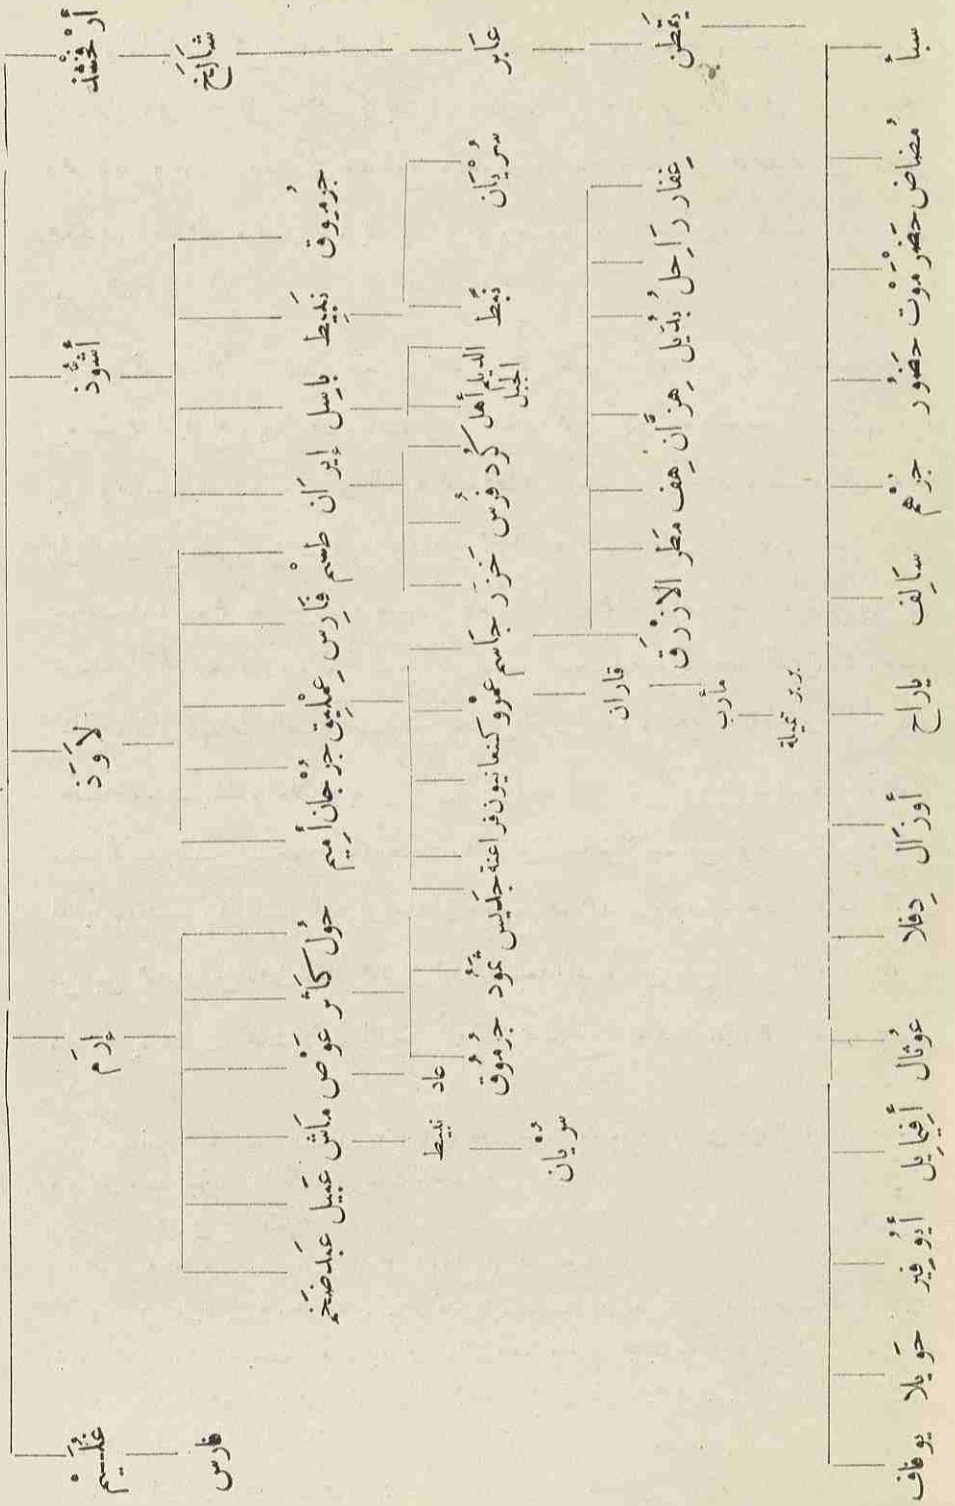 أَرْفَخْشَذ أَشُّوذ لَاوَذ إِرَم غُلَيَمْ
شَالَخ فارس
جُرْمُوق نَبِيط باسل إيرَان طَسْم فَارِس عِمْلِيق جُرْجان أَمِيم حُول كَاثَر عَوَض مَاش عَبِيل عَبْدضَخْم
عَابر سُرْيَان نَبَط الديلم أهل الجبل كُرْد فُرْس خَزَر جَاسم عَمْرو كنعانيون فراعنة جَدِيس ثَمُود جُرْمُوق
عاد نبيط
سُرْيان
يَقْطَن غِفَار رَاحل بُدَيل هِزَّان هِف مَطَر الازْرَق
فاران
مأرب
بربر تميلة
سبأ مُضاض حَضْرَمَوْت حَضُور جُرْهم سَالِف ياراح أوزَال دِفلا عُوثال أَفِيمايِل أَيُوفِير حَوِيلا يوفاف